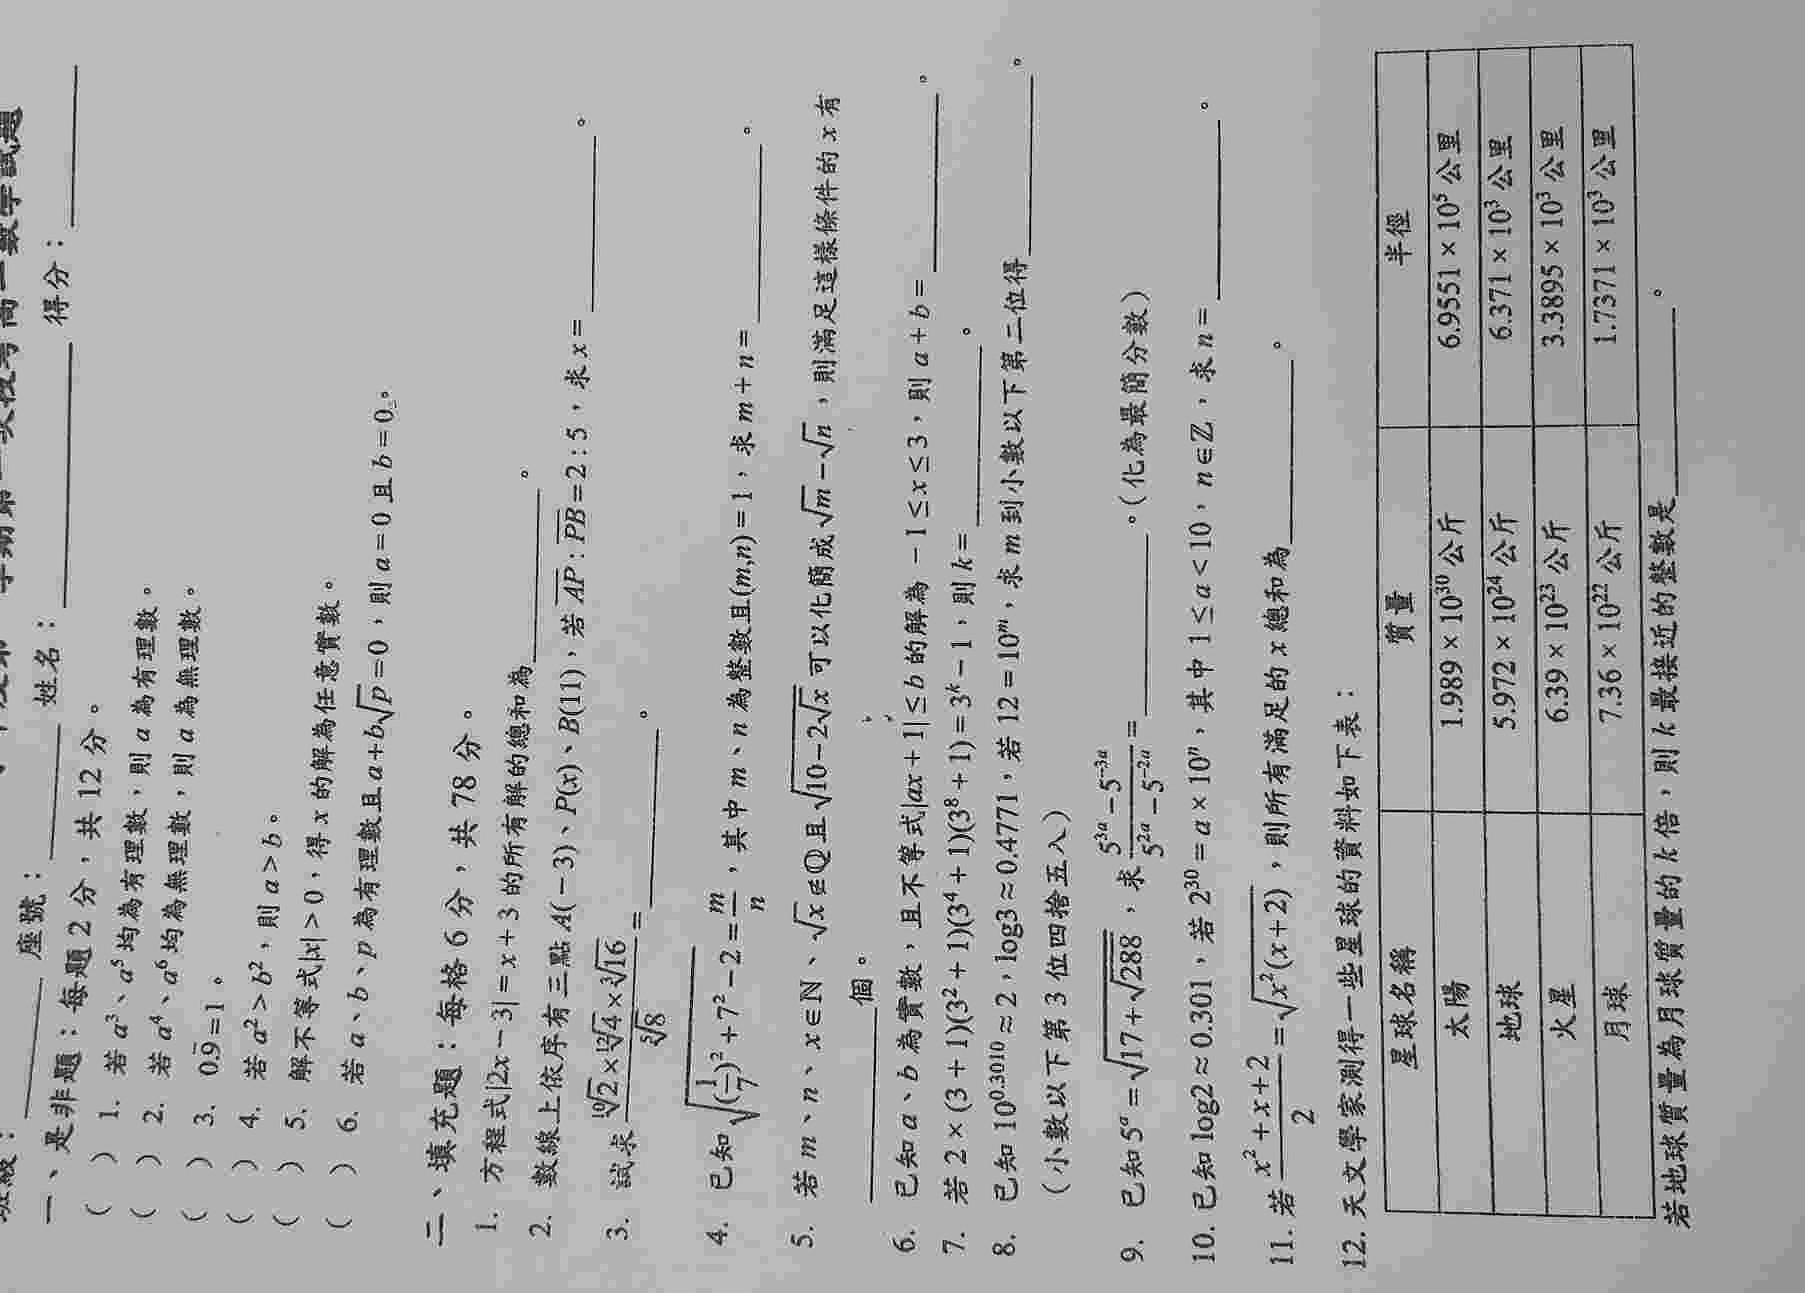 座號： 姓名： 得分：
一、是非題：每題 2 分，共 12 分。
( ) 1. 若 a³、a⁵ 均為有理數，則 a 為有理數。
( ) 2. 若 a⁴、a⁶ 均為無理數，則 a 為無理數。
( ) 3. 0.9̄ = 1。
( ) 4. 若 a² > b²，則 a > b。
( ) 5. 解不等式|x| > 0，得 x 的解為任意實數。
( ) 6. 若 a、b、p 為有理數且 a+b√p = 0，則 a = 0 且 b = 0。
二、填充題：每格 6 分，共 78 分。
1. 方程式|2x − 3| = x + 3 的所有解的總和為______。
2. 數線上依序有三點 A(−3)、P(x)、B(11)，若 A̅P̅ : P̅B̅ = 2 : 5，求 x = ______。
3. 試求 (¹⁰√2 × ¹²√4 × ³√16) / ⁵√8 = ______。
4. 已知 √((1/7)² + 7² − 2) = m/n，其中 m、n 為整數且(m,n) = 1，求 m + n = ______。
5. 若 m、n、x ∈ N、√x ∉ Q 且 √(10 − 2√x) 可以化簡成 √m − √n，則滿足這樣條件的 x 有
______個。
6. 已知 a、b 為實數，且不等式|ax + 1| ≤ b 的解為 −1 ≤ x ≤ 3，則 a + b = ______。
7. 若 2 × (3 + 1)(3² + 1)(3⁴ + 1)(3⁸ + 1) = 3ᵏ − 1，則 k = ______。
8. 已知 10^0.3010 ≈ 2，log3 ≈ 0.4771，若 12 = 10ᵐ，求 m 到小數以下第二位得______。
（小數以下第 3 位四捨五入）
9. 已知 5ᵃ = √(17 + √288)，求 (5³ᵃ − 5⁻³ᵃ) / (5²ᵃ − 5⁻²ᵃ) = ______。（化為最簡分數）
10. 已知 log2 ≈ 0.301，若 2³⁰ = a × 10ⁿ，其中 1 ≤ a < 10，n ∈ Z，求 n = ______。
11. 若 (x² + x + 2) / 2 = √(x²(x + 2))，則所有滿足的 x 總和為______。
12. 天文學家測得一些星球的資料如下表：
星球名稱 質量 半徑
太陽 1.989 × 10³⁰ 公斤 6.9551 × 10⁵ 公里
地球 5.972 × 10²⁴ 公斤 6.371 × 10³ 公里
火星 6.39 × 10²³ 公斤 3.3895 × 10³ 公里
月球 7.36 × 10²² 公斤 1.7371 × 10³ 公里
若地球質量為月球質量的 k 倍，則 k 最接近的整數是______。